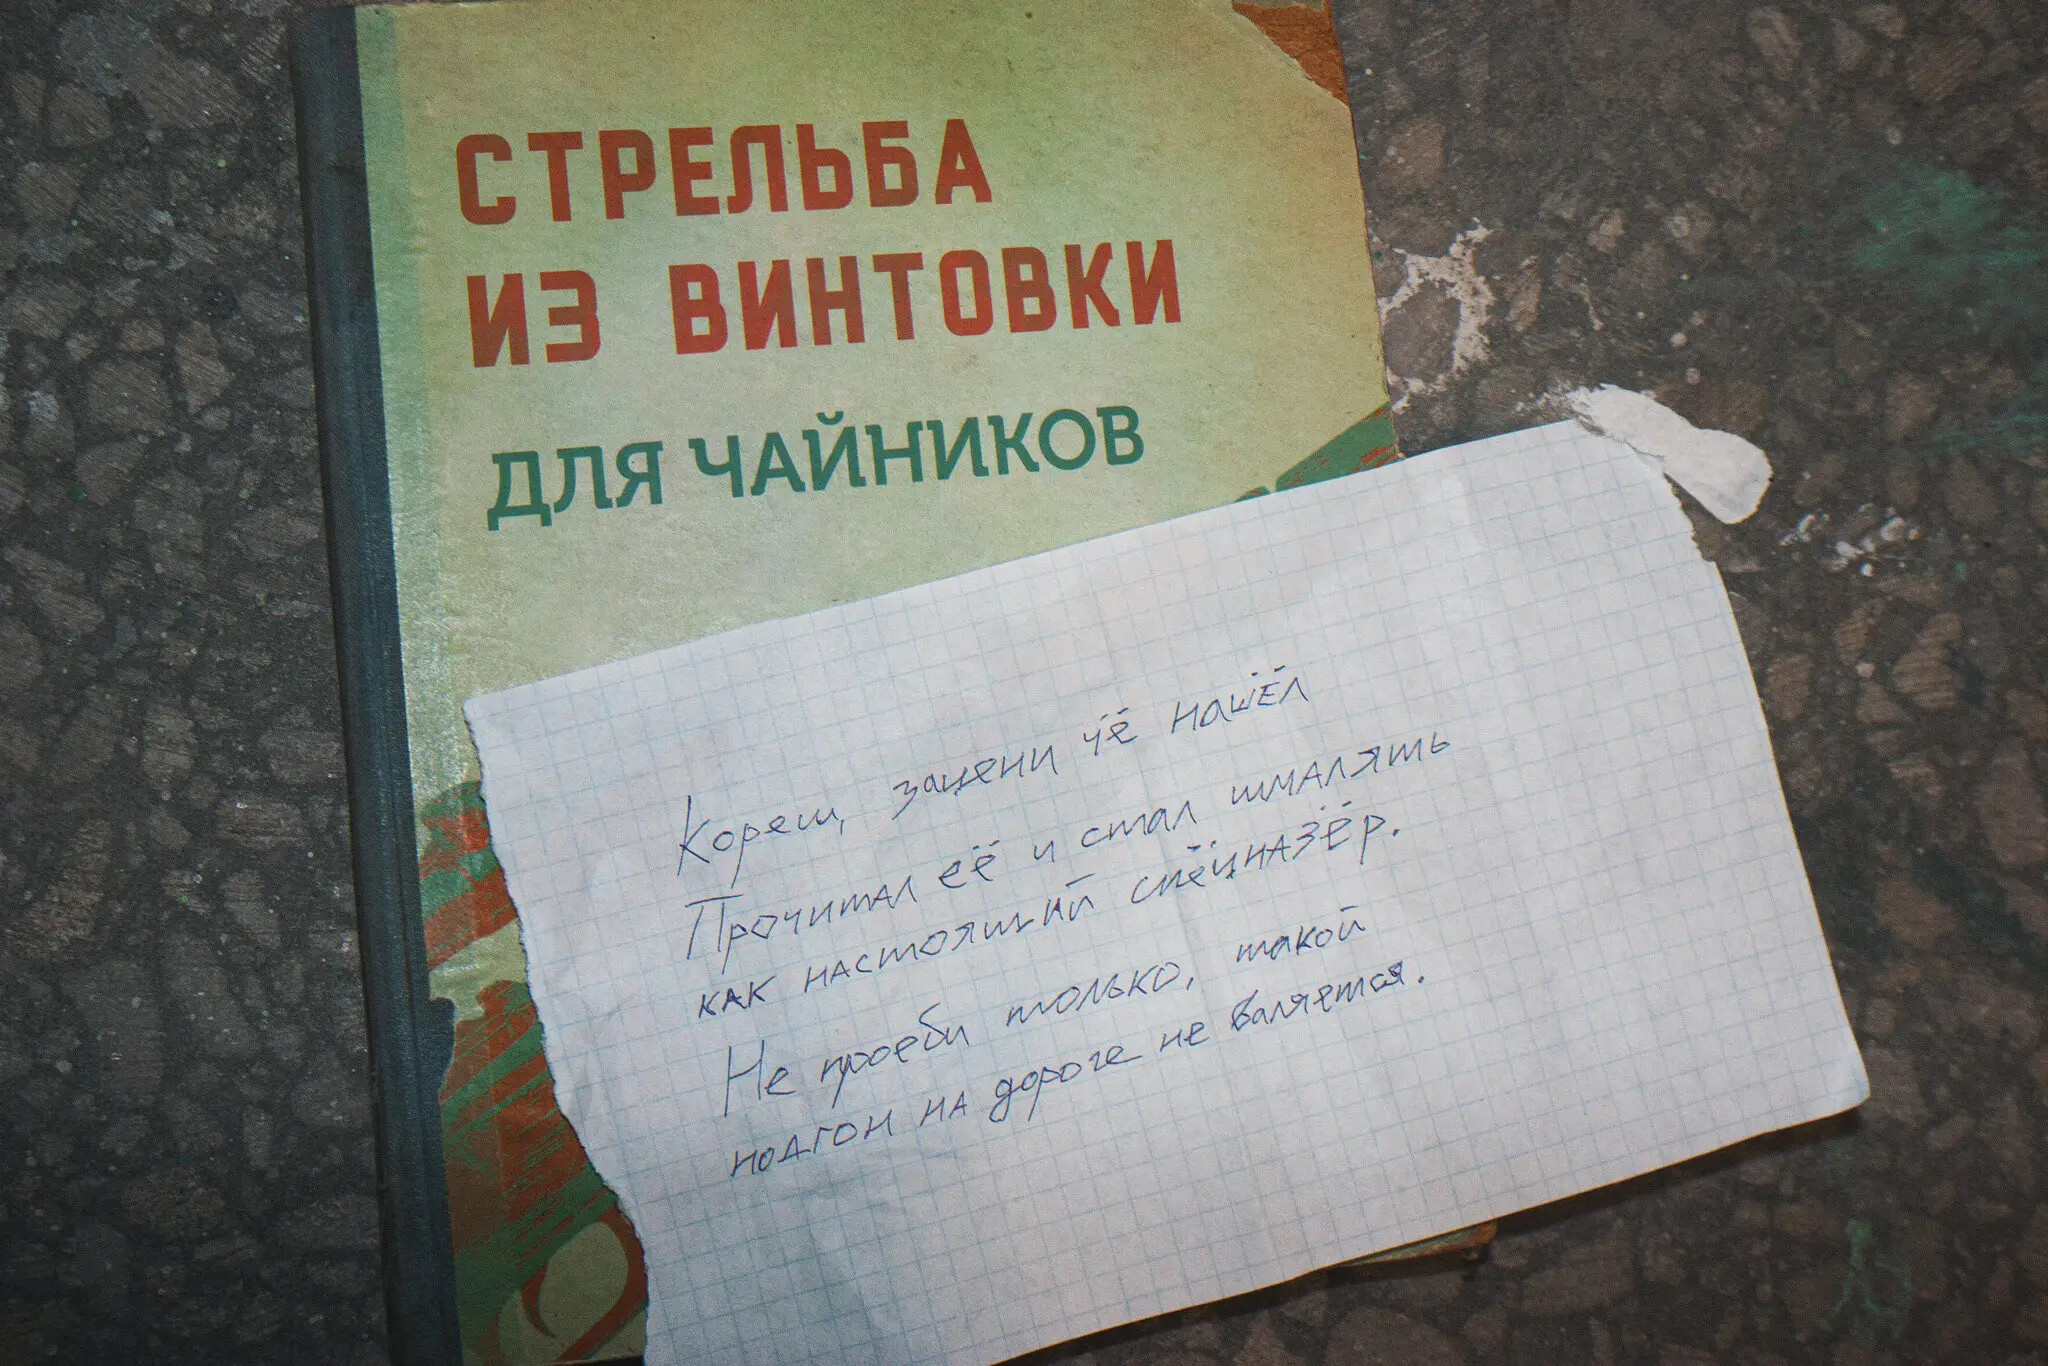 СТРЕЛЬБА
ИЗ ВИНТОВКИ
ДЛЯ ЧАЙНИКОВ
Кореш, зацени чё нашёл
Прочитал её и стал шмалять
как настоящий спёцназёр.
Не проеби только, такой
подгон на дороге не валяется.